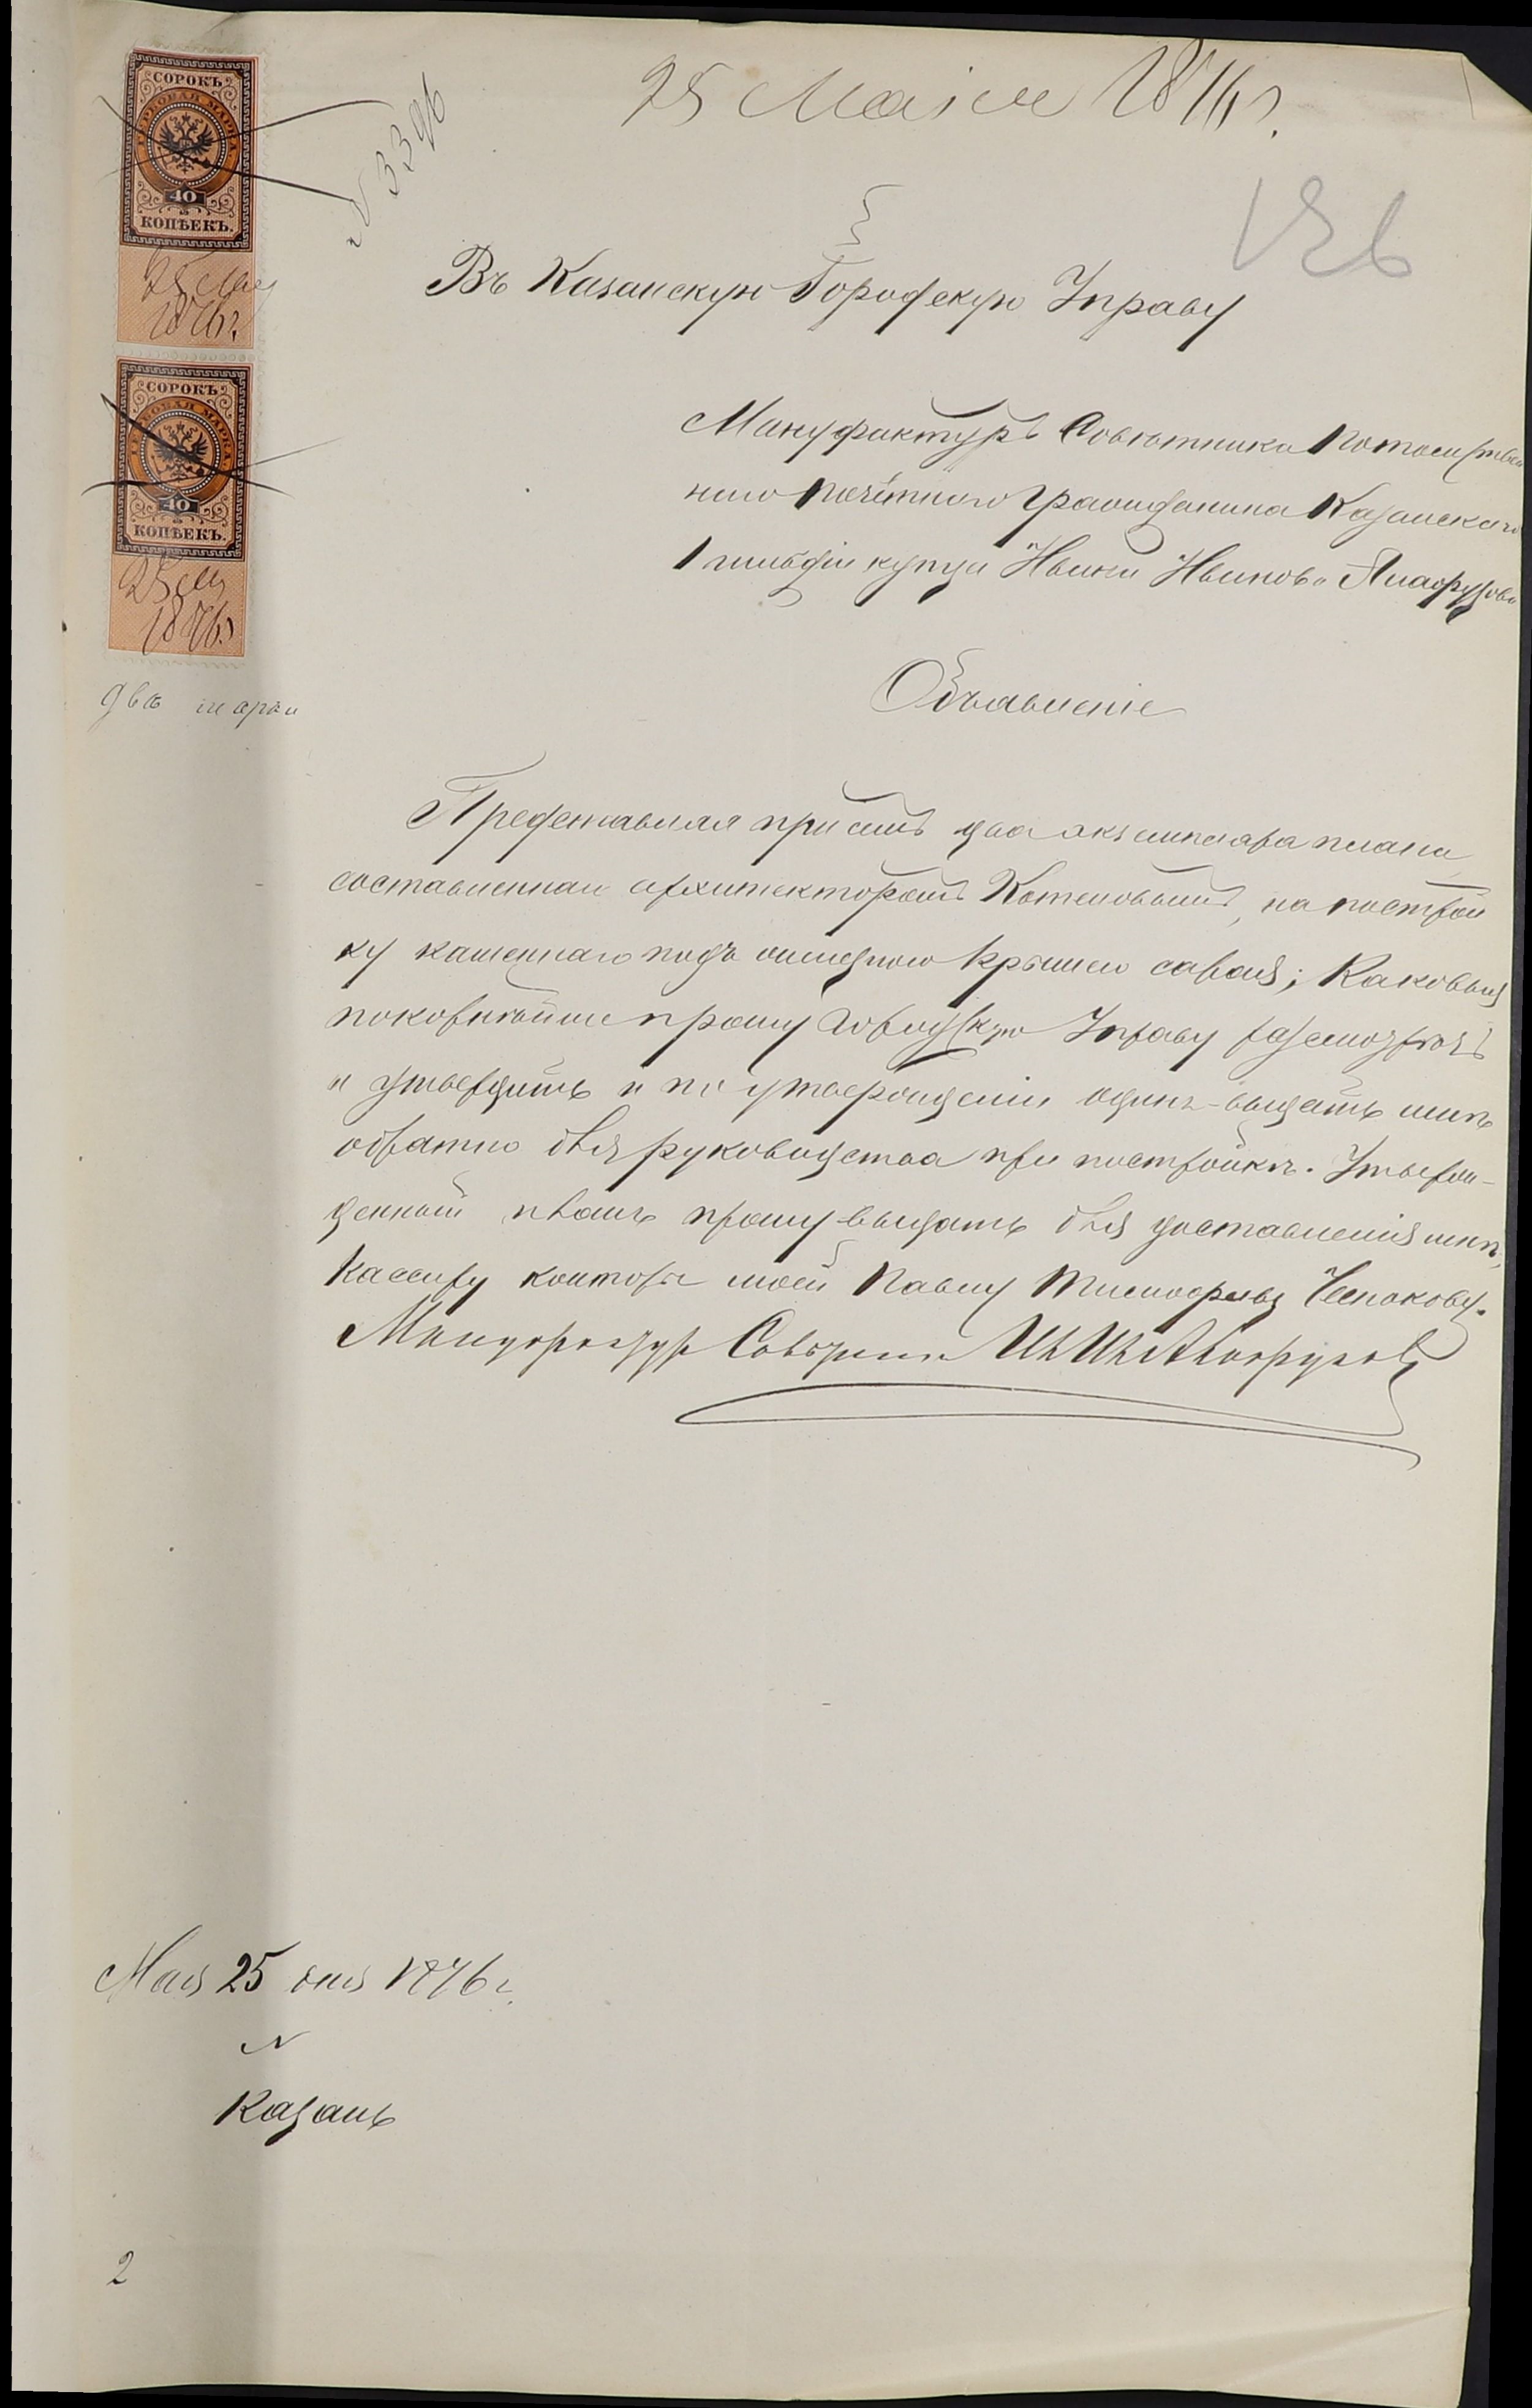 25 Мая 1876 г.
N 3396
СОРОКЪ
ГЕРБОВАЯ МАРКА
40
КОПѢЕКЪ.
25 мая
1876 г.
СОРОКЪ
ГЕРБОВАЯ МАРКА
40
КОПѢЕКЪ.
25 мая
1876 г.
две марки
Въ Казанскую Городскую Управу
Мануфактуръ Совѣтника Потомствен
наго Почётнаго Гражданина Казанскаго
1 гильдіи купца Ивана Иванова Алафузова
Объявленіе
Представляя при семъ два экземпляра плана
составленнаго архитекторомъ Котеловымъ, на построй
ку каменнаго подъ желѣзною крышею сарая; каковыя
покорнѣйше прошу Городскую Управу разсмотрѣть
и утвердить и по утвержденіи одинъ выдать мнѣ
обратно для руководства при постройкѣ. Утверж-
денный планъ прошу выдать для доставленія мнѣ,
Кассиру конторы моей Павлу Тимофееву Чеснокову.
Мануфактур Советник Ив Ив Алафузов
Мая 25 дня 1876 г.
N
Казань
2